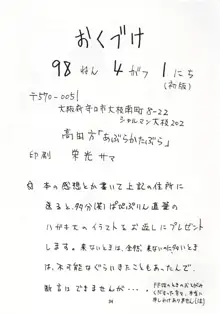 おくづけ
98ねん 4がつ 1にち
(初版)
〒570-0051
大阪府守口市大枝南町8-22
シャルマン大枝202
高田方「あぶらかたぶら」
印刷 栄光サマ
本の感想とか書いて上記の住所に
送ると多分(笑)ぱじぷりん直筆の
ハガキ大のイラストをお返しにプレゼント
します。来ないときは、全然来ないの多いときは
は、不可能なぐらいきたこともあったんで、
断言はできませんが・・・・
34